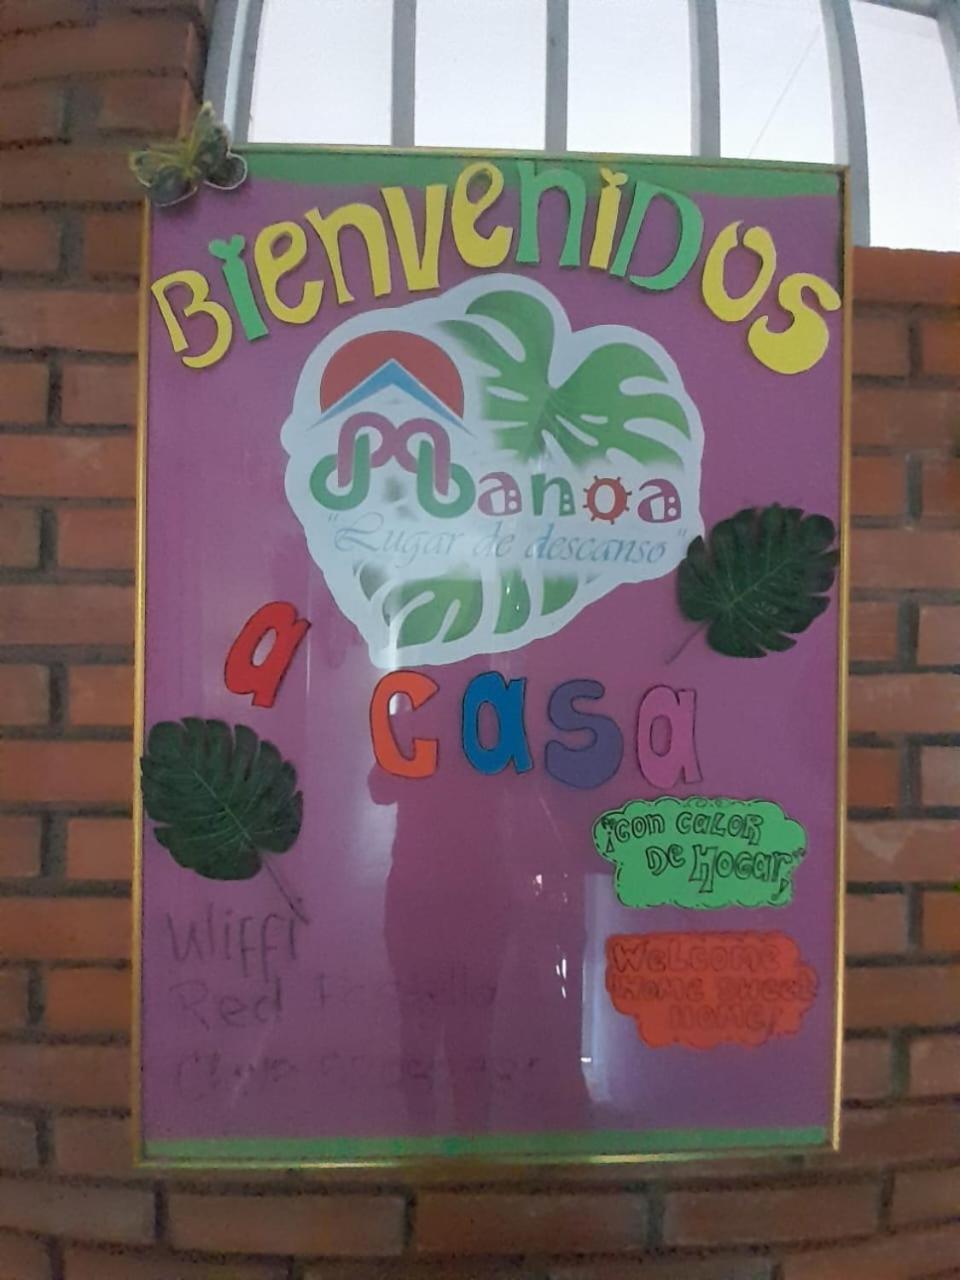 BienveniDos
Manoa
"Lugar de descanso"
a casa
"¡con calor
De Hogar"
Welcome
Home sweet
Home
Wiiffi
Red